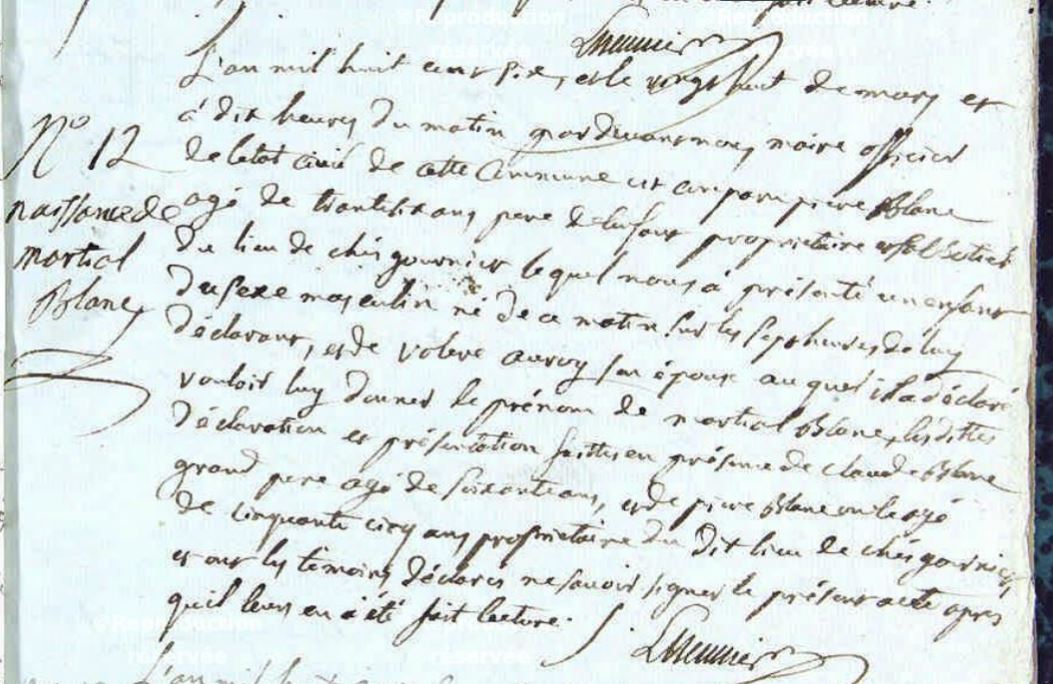 Lmeunier
L'an mil huit cent six, et le vingt huit de mars et
à dix heures du matin pardevant nous, maire officier
N° 12
de letat civil de cette Commune est comparu pierre Blanc
naissance de
agé de trante six ans pere de lenfant proprietaire
martial
du lieu de chés gournier lequel nous à présenté un enfant
Blanc
du sexe masculin né de ce matin sur les sept heures de luy
déclarant, et de valerie auroy son épouse auquel il a déclaré
vouloir luy donner le prénom de martial Blanc, les dittes
déclaration et présentation faittes en présence de claude Blanc
grand pere agé de soixante ans, et de pierre Blanc oncle agé
de cinquante cinq ans proprietaire du dit lieu de chés gournier,
et ont les temoins déclarés ne savoir signer le présent acte apres
quil leurs en a été fait lecture.
Lmeunier